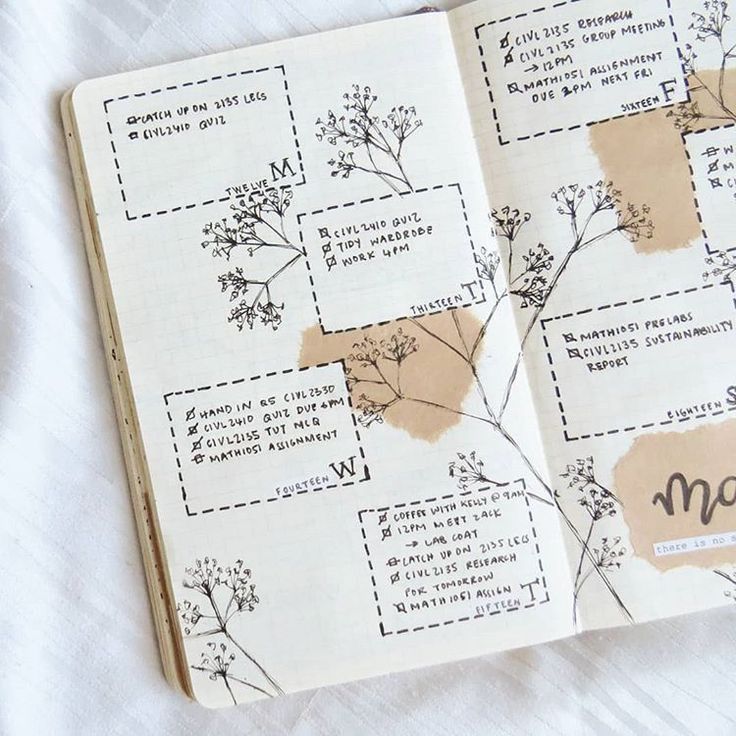 CATCH UP ON 2135 LECS
CIVL2410 QUIZ
TWELVE M
CIVL2410 QUIZ
TIDY WARDROBE
WORK 4PM
THIRTEEN T
HAND IN Q5 CIVL2330
CIVL2410 QUIZ DUE 6PM
CIVL2135 TUT MCQ
MATH1051 ASSIGNMENT
FOURTEEN W
COFFEE WITH KELLY @ 9AM
12PM MEET ZACK
→ LAB COAT
CATCH UP ON 2135 LECS
CIVL2135 RESEARCH
FOR TOMORROW
MATH1051 ASSIGN
FIFTEEN T
CIVL2135 RESEARCH
CIVL2135 GROUP MEETING
→ 12PM
MATH1051 ASSIGNMENT
DUE 2PM NEXT FRI
SIXTEEN F
MATH1051 PRELABS
CIVL2135 SUSTAINABILITY
REPORT
EIGHTEEN S
Ma
there is no s